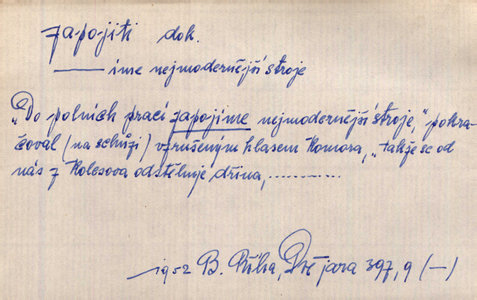 zapojiti dok.
—— íme nejmodernější stroje
„Do polních prací zapojíme nejmodernější stroje," pokra-
čoval (na schůzi) vzrušeným hlasem Komora, „takže se od
nás z Kolesova odstěhuje dřina, ..........
1952 B. Říha, Dvě jara 397, 9 (—)